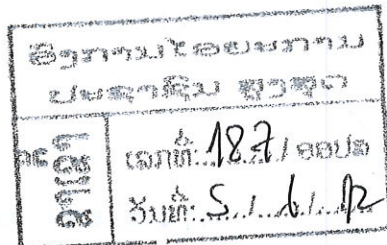 ອົງການໄອຍະການ
ປະຊາຊົນ ສູງສຸດ
ເລກທີ: 187 / ອອປສ
ວັນທີ: 5 / / 12